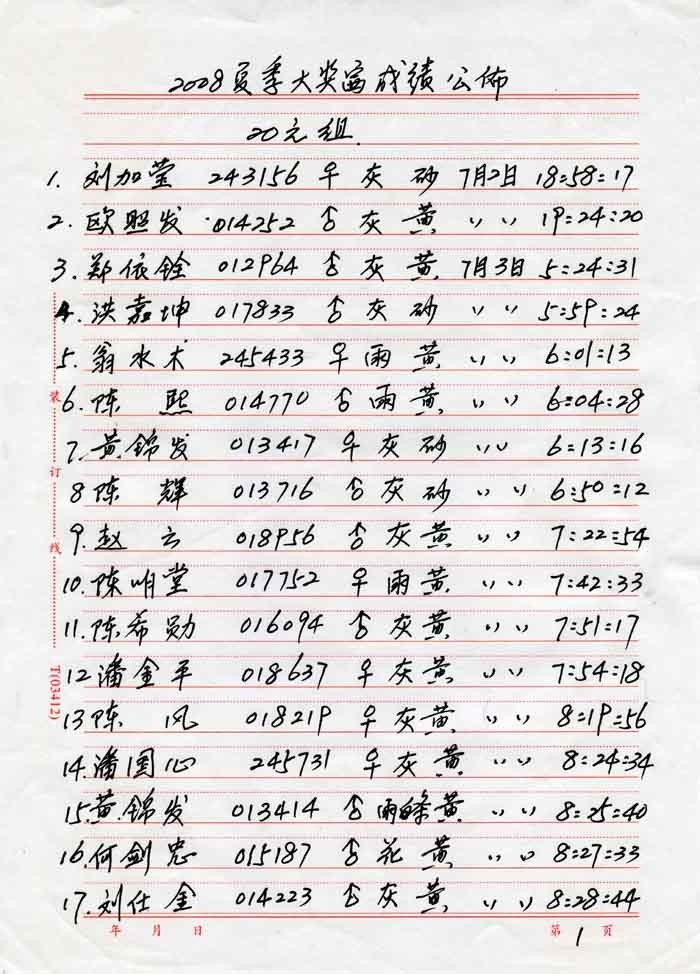 2008夏季大奖赛成绩公佈
20元组
1. 刘加莹 243156 ♀ 灰 砂 7月2日 18:58:17
2. 欧照发 014252 ♂ 灰 黄 〃 〃 19:24:20
3. 郑依铨 012964 ♂ 灰 黄 7月3日 5:24:31
4. 洪嘉坤 017833 ♂ 灰 砂 〃 〃 5:59:24
5. 翁水术 245433 ♀ 雨 黄 〃 〃 6:01:13
6. 陈 熙 014770 ♂ 雨 黄 〃 〃 6:04:28
7. 黄锦发 013417 ♀ 灰 砂 〃 〃 6:13:16
8 陈 辉 013716 ♂ 灰 砂 〃 〃 6:50:12
9. 赵 云 018956 ♂ 灰 黄 〃 〃 7:22:54
10. 陈明堂 017752 ♀ 雨 黄 〃 〃 7:42:33
11. 陈希勋 016094 ♂ 灰 黄 〃 〃 7:51:17
12 潘金平 018637 ♀ 灰 黄 〃 〃 7:54:18
13 陈 风 018219 ♀ 灰 黄 〃 〃 8:19:56
14. 潘国心 245731 ♀ 灰 黄 〃 〃 8:24:34
15. 黄锦发 013414 ♂ 雨白条 黄 〃 〃 8:25:40
16. 何剑忠 015187 ♂ 花 黄 〃 〃 8:27:33
17. 刘仕金 014223 ♂ 灰 黄 〃 〃 8:28:44
装 订 线
T(03412)
年 月 日 第 1 页